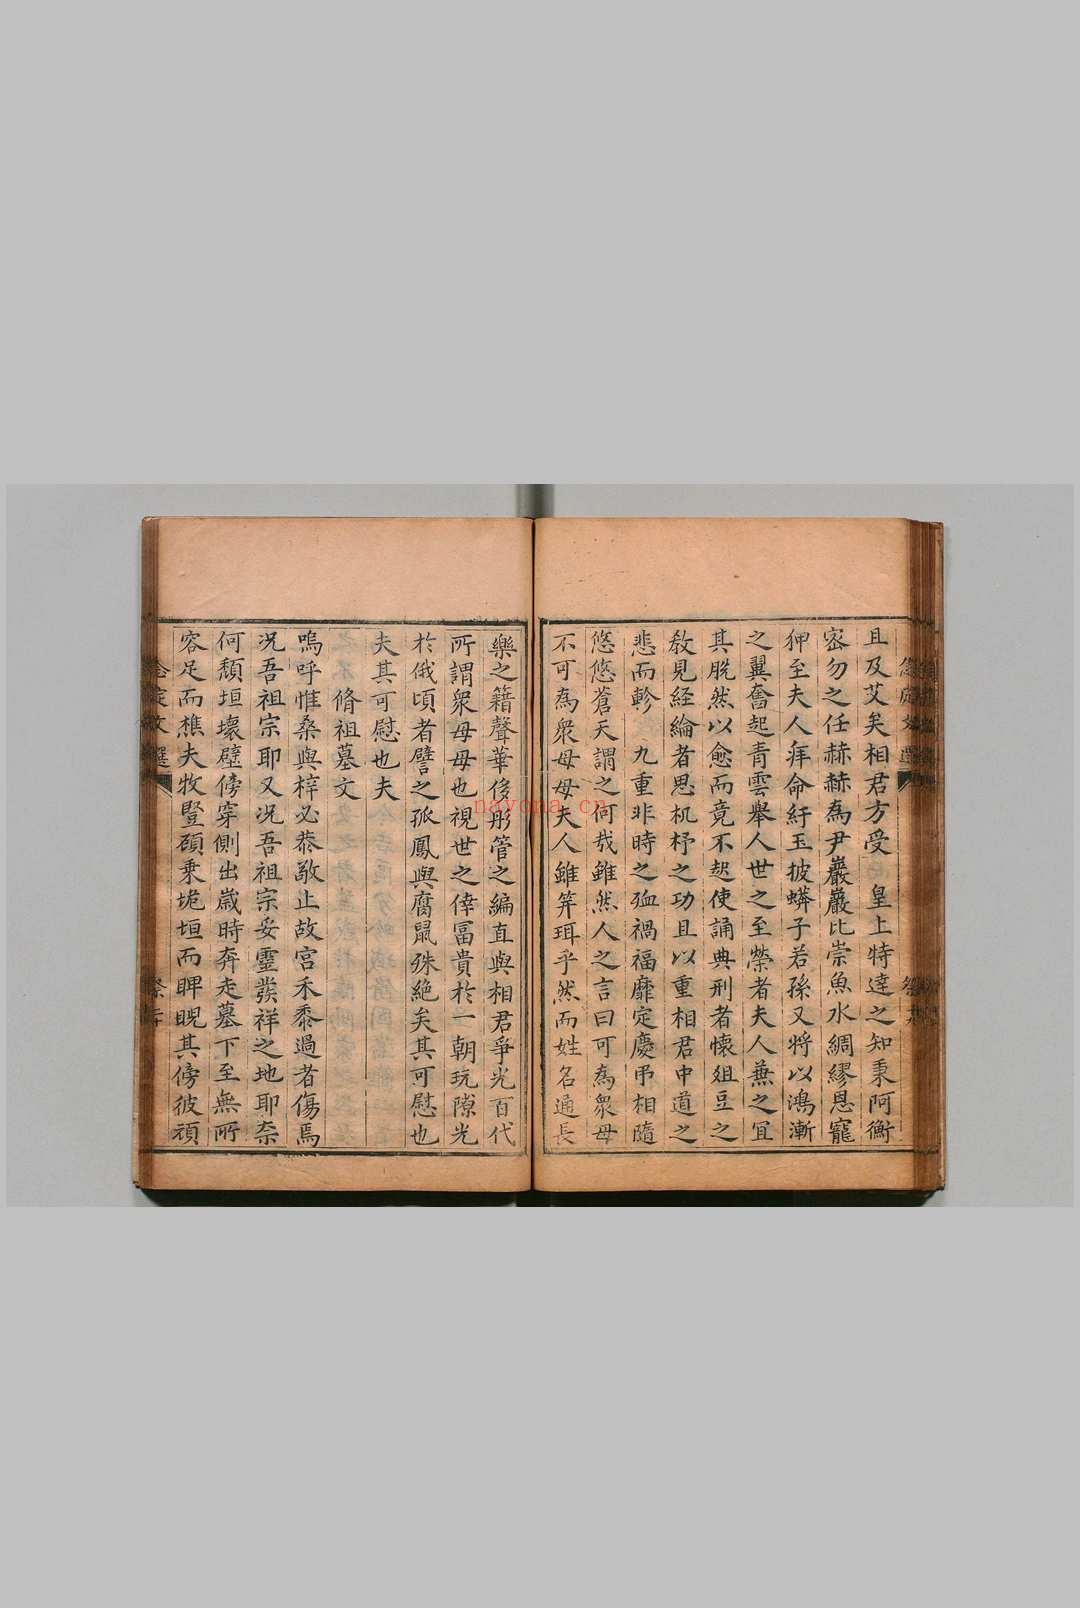 且及艾矣相君方受　皇上特達之知秉阿衡
密勿之任赫赫為尹巖巖比崇魚水綢繆恩寵
狎至夫人拜命紆玉披蟒子若孫又將以鴻漸
之翼奮起青雲舉人世之至榮者夫人兼之宜
其脫然以愈而竟不起使誦典刑者懷俎豆之
教見經綸者思机杼之功且以重相君中道之
悲而軫　九重非時之恤禍福靡定慶弔相隨
悠悠蒼天謂之何哉雖然人之言曰可為衆母
不可為衆母母夫人雖笄珥乎然而姓名通長
樂之籍聲華侈彤管之編直與相君爭光百代
所謂衆母母也視世之倖冨貴於一朝玩隙光
於俄頃者譬之孤鳳與腐鼠殊絶矣其可慰也
夫其可慰也夫
脩祖墓文
嗚呼惟桑與梓必恭敬止故宫禾黍過者傷焉
况吾祖宗耶又况吾祖宗妥靈發祥之地耶奈
何頽垣壞壁傍穿側出嵗時奔走墓下至無所
容足而樵夫牧豎顧乗垝垣而睥睨其傍彼頑
nayona.cn